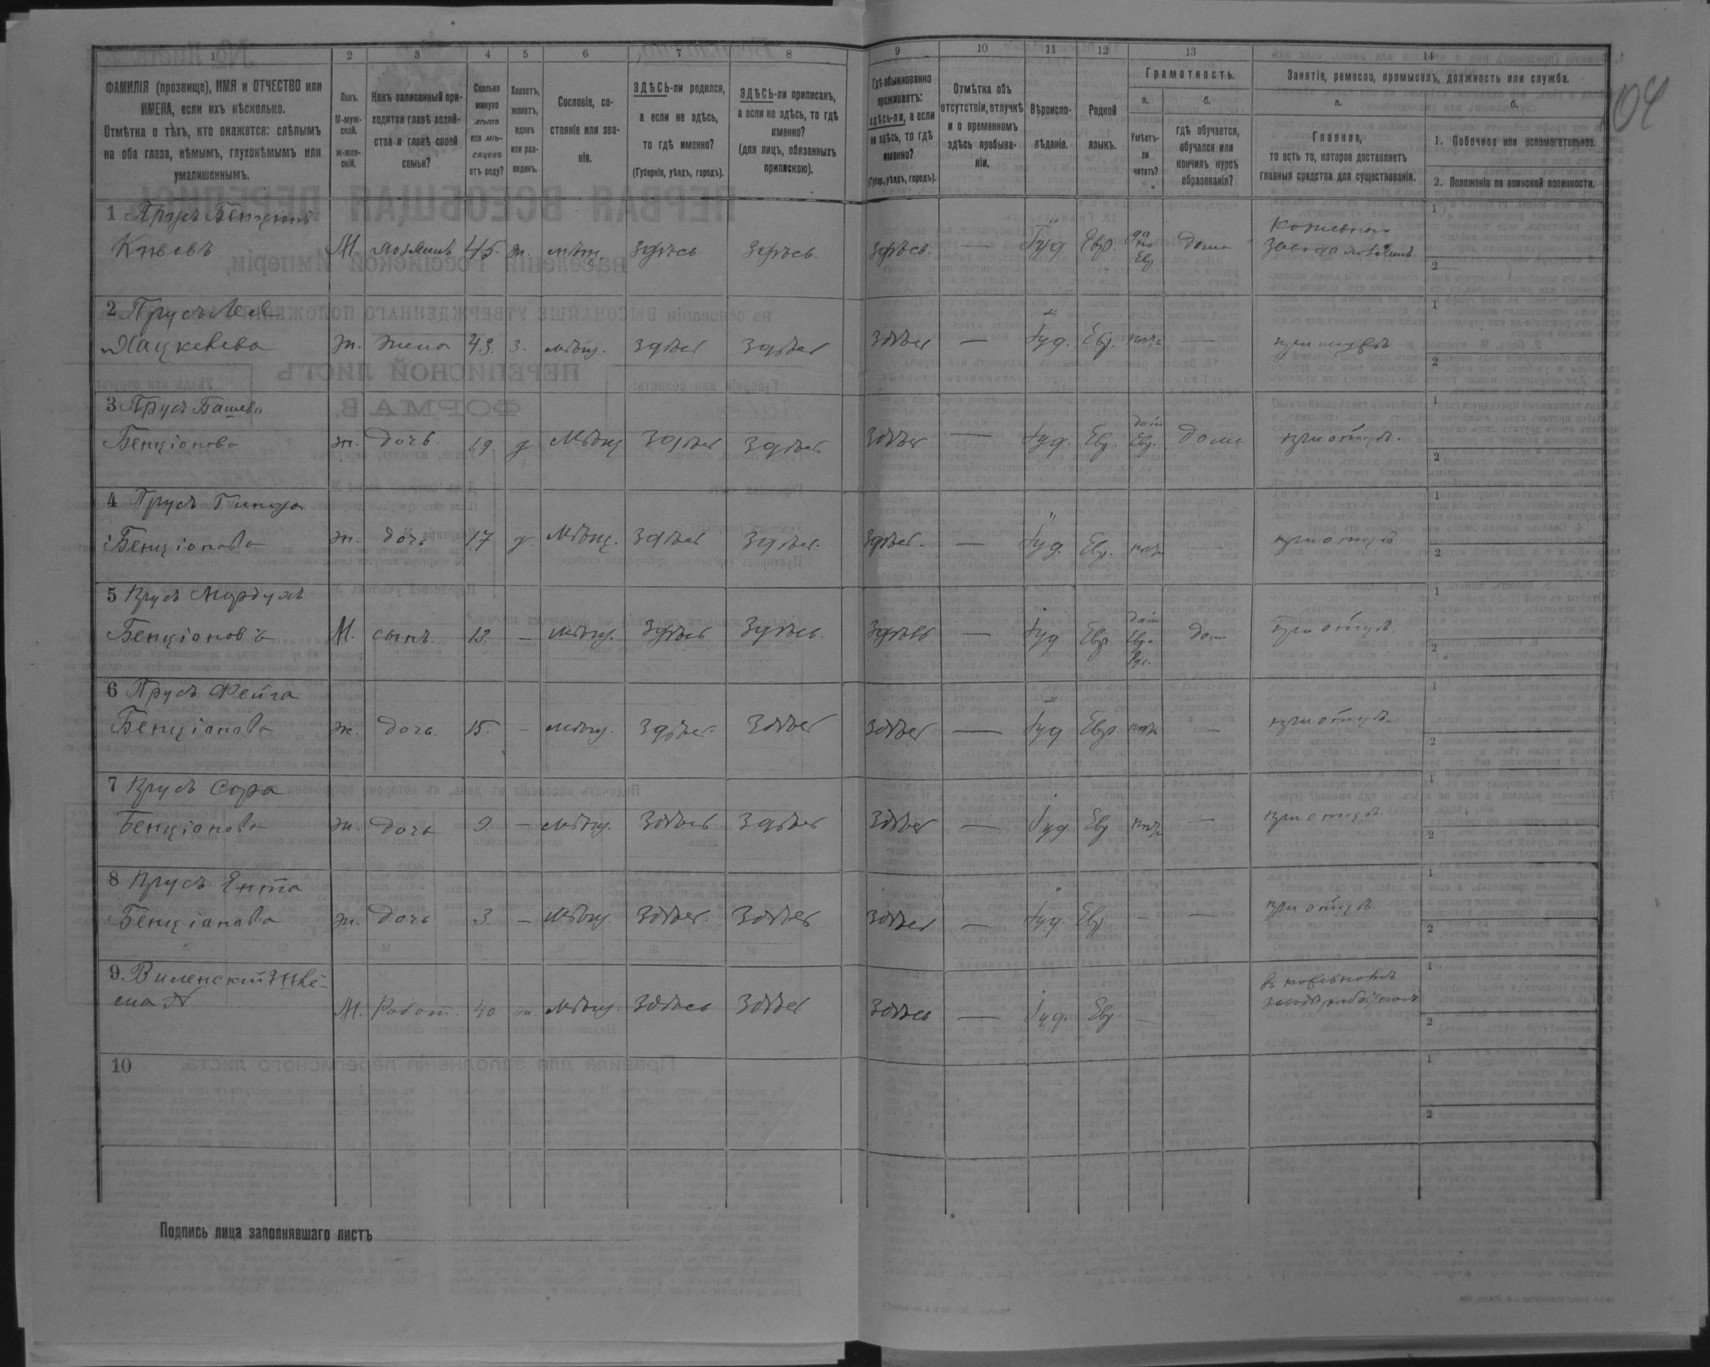 1 2 3 4 5 6 7 8 9 10 11 12 13 14
ФАМИЛІЯ (прозвище), ИМЯ и ОТЧЕСТВО или
ИМЕНА, если ихъ нѣсколько.
Отмѣтка о тѣхъ, кто окажется: слѣпымъ
на оба глаза, нѣмымъ, глухонѣмымъ или
умалишеннымъ.
Полъ.
М-муж-
ской.
Ж-жен-
скій.
Какъ записанный при-
ходится главѣ хозяй-
ства и главѣ своей
семьи?
Сколько
минуло
лѣтъ
или мѣ-
сяцевъ
отъ роду?
Холостъ,
женатъ,
вдовъ
или раз-
веденъ.
Сословіе, со-
стояніе или зва-
ніе.
ЗДѢСЬ-ли родился,
а если не здѣсь,
то гдѣ именно?
(Губернія, уѣздъ, городъ).
ЗДѢСЬ-ли приписанъ,
а если не здѣсь, то гдѣ
именно?
(для лицъ, обязанныхъ
припискою).
Гдѣ обыкновенно
проживаетъ:
здѣсь-ли, а если
не здѣсь, то гдѣ
именно?
(Губер., уѣздъ, городъ).
Отмѣтка объ
отсутствіи, отлучкѣ
и о временномъ
здѣсь пребыва-
ніи.
Вѣроиспо-
вѣданіе.
Родной
языкъ.
Грамотность.
а.
Умѣетъ-
ли
читать?
б.
гдѣ обучается,
обучался или
кончилъ курсъ
образованія?
Занятіе, ремесло, промыселъ, должность или служба.
а.
Главное,
то есть то, которое доставляетъ
главныя средства для существованія.
б.
1. Побочное или вспомогательное.
2. Положеніе по воинской повинности.
104
1 Прусъ Бенціонъ
М 45 ж. мѣщ. здѣсь здѣсь здѣсь — Іуд Евр. да по Евр дома
1
2
2 Прусъ
Хацкелева ж. жена 43 з. мѣщ. здѣсь здѣсь здѣсь — Іуд. Евр. нѣтъ — при мужѣ
1
2
3 Прусъ Башева
Бенціонова ж. дочь 19 д мѣщ здѣсь здѣсь здѣсь — Іуд. Евр. Евр. дома при отцѣ.
1
2
4 Прусъ
Бенціонова ж. дочь 17 д мѣщ. здѣсь здѣсь. здѣсь. — Іуд. Евр. нѣтъ — при отцѣ
1
2
5 Прусъ Мордухъ
Бенціоновъ М. сынъ. — мѣщ. здѣсь здѣсь. здѣсь — Іуд Евр. Евр. дома при отцѣ
1
2
6 Прусъ Фейга
Бенціонова ж. дочь. 15. — мѣщ. здѣсь. здѣсь здѣсь — Іуд Евр нѣтъ — при отцѣ
1
2
7 Прусъ Сора
Бенціонова ж. дочь 9 — мѣщ. здѣсь здѣсь здѣсь — Іуд Евр нѣтъ — при отцѣ
1
2
8 Прусъ Ента
Бенціонова ж. дочь 3 — мѣщ. здѣсь здѣсь здѣсь — Іуд Евр — — при отцѣ
1
2
9. Виленскій
М. Работ. 40 ж. мѣщ. здѣсь здѣсь здѣсь — Іуд. Евр —
1
2
10
1
2
Подпись лица заполнявшаго листъ